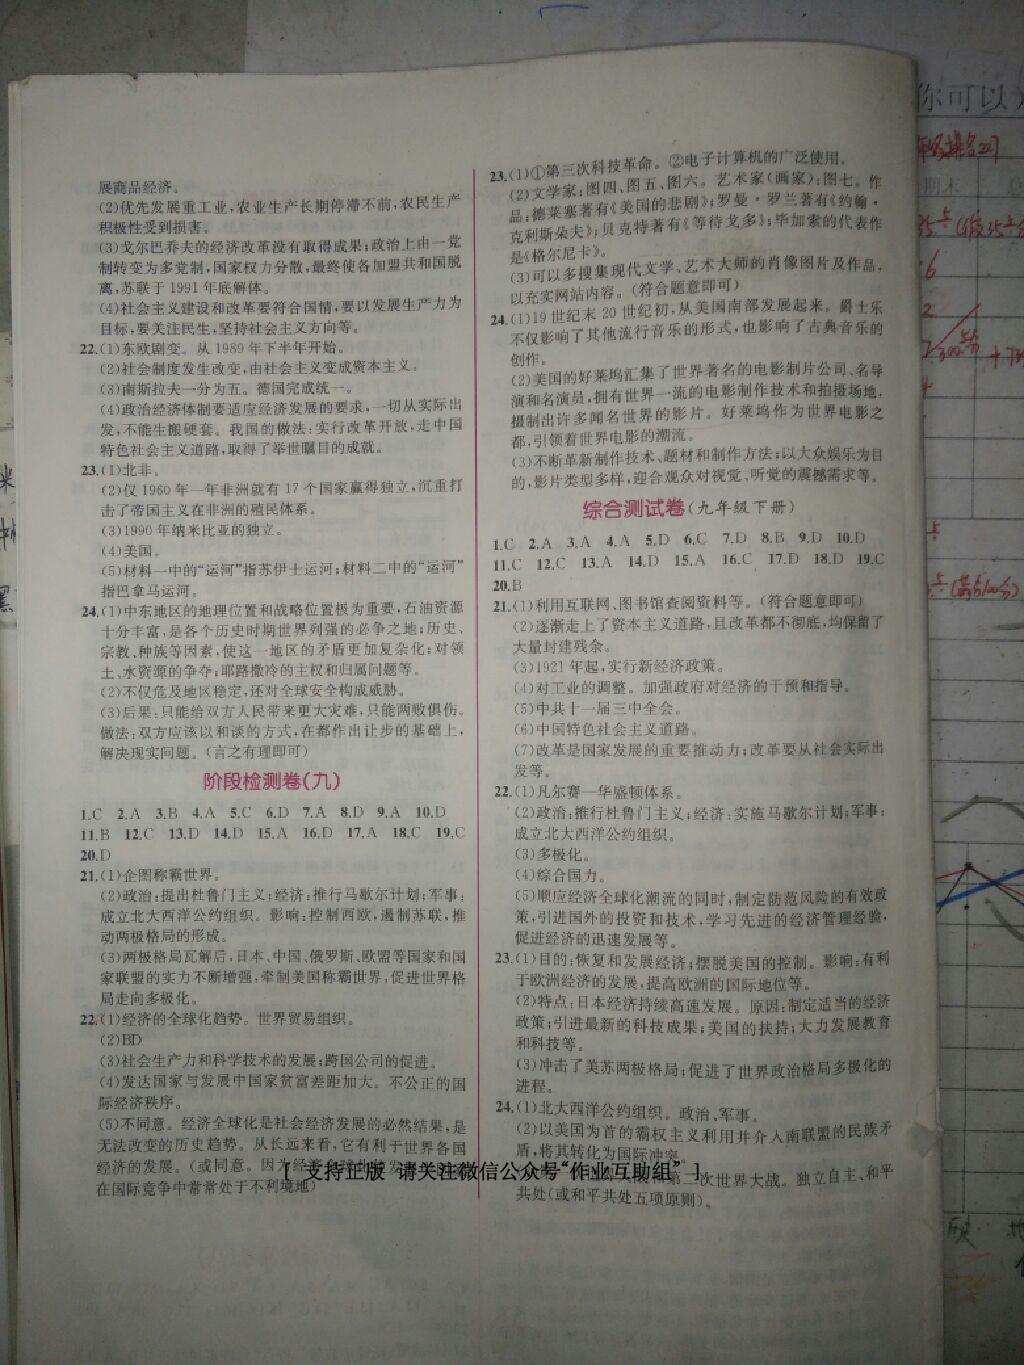 展商品经济。
(2)优先发展重工业,农业生产长期停滞不前,农民生产
积极性受到损害。
(3)戈尔巴乔夫的经济改革没有取得成果;政治上由一党
制转变为多党制,国家权力分散,最终使各加盟共和国脱
离,苏联于1991年底解体。
(4)社会主义建设和改革要符合国情,要以发展生产力为
目标,要关注民生,坚持社会主义方向等。
22.(1)东欧剧变。从1989年下半年开始。
(2)社会制度发生改变,由社会主义变成资本主义。
(3)南斯拉夫一分为五。德国完成统一。
(4)政治经济体制要适应经济发展的要求,一切从实际出
发,不能生搬硬套。我国的做法:实行改革开放,走中国
特色社会主义道路,取得了举世瞩目的成就。
23.(1)北非。
(2)仅1960年一年非洲就有17个国家赢得独立,沉重打
击了帝国主义在非洲的殖民体系。
(3)1990年纳米比亚的独立。
(4)美国。
(5)材料一中的“运河”指苏伊士运河;材料二中的“运河”
指巴拿马运河。
24.(1)中东地区的地理位置和战略位置极为重要,石油资源
十分丰富,是各个历史时期世界列强的必争之地;历史、
宗教、种族等因素,使这一地区的矛盾更加复杂化;对领
土、水资源的争夺;耶路撒冷的主权和归属问题等。
(2)不仅危及地区稳定,还对全球安全构成威胁。
(3)后果:只能给双方人民带来更大灾难,只能两败俱伤。
做法:双方应该以和谈的方式,在都作出让步的基础上,
解决现实问题。(言之有理即可)
阶段检测卷(九)
1.C 2.A 3.B 4.A 5.C 6.D 7.A 8.D 9.A 10.D
11.B 12.C 13.D 14.D 15.A 16.D 17.A 18.C 19.C
20.D
21.(1)企图称霸世界。
(2)政治:提出杜鲁门主义;经济:推行马歇尔计划;军事:
成立北大西洋公约组织。影响:控制西欧,遏制苏联,推
动两极格局的形成。
(3)两极格局瓦解后,日本、中国、俄罗斯、欧盟等国家和国
家联盟的实力不断增强,牵制美国称霸世界,促进世界格
局走向多极化。
22.(1)经济的全球化趋势。世界贸易组织。
(2)BD
(3)社会生产力和科学技术的发展;跨国公司的促进。
(4)发达国家与发展中国家贫富差距加大。不公正的国
际经济秩序。
(5)不同意。经济全球化是社会经济发展的必然结果,是
无法改变的历史趋势。从长远来看,它有利于世界各国
经济的发展。(或同意。因为经济
在国际竞争中常常处于不利境地)
23.(1)①第三次科技革命。②电子计算机的广泛使用。
(2)文学家:图四、图五、图六。艺术家(画家):图七。作
品:德莱塞著有《美国的悲剧》;罗曼·罗兰著有《约翰·
克利斯朵夫》;贝克特著有《等待戈多》;毕加索的代表作
是《格尔尼卡》。
(3)可以多搜集现代文学、艺术大师的肖像图片及作品,
以充实网站内容。(符合题意即可)
24.(1)19世纪末20世纪初,从美国南部发展起来。爵士乐
不仅影响了其他流行音乐的形式,也影响了古典音乐的
创作。
(2)美国的好莱坞汇集了世界著名的电影制片公司、名导
演和名演员,拥有世界一流的电影制作技术和拍摄场地,
摄制出许多闻名世界的影片。好莱坞作为世界电影之
都,引领着世界电影的潮流。
(3)不断革新制作技术、题材和制作方法;以大众娱乐为目
的,影片类型多样,迎合观众对视觉、听觉的震撼需求等。
综合测试卷(九年级下册)
1.C 2.A 3.A 4.A 5.D 6.C 7.D 8.B 9.D 10.D
11.C 12.C 13.A 14.D 15.A 16.C 17.D 18.D 19.C
20.B
21.(1)利用互联网、图书馆查阅资料等。(符合题意即可)
(2)逐渐走上了资本主义道路,且改革都不彻底,均保留了
大量封建残余。
(3)1921年起,实行新经济政策。
(4)对工业的调整。加强政府对经济的干预和指导。
(5)中共十一届三中全会。
(6)中国特色社会主义道路。
(7)改革是国家发展的重要推动力;改革要从社会实际出
发等。
22.(1)凡尔赛—华盛顿体系。
(2)政治:推行杜鲁门主义;经济:实施马歇尔计划;军事:
成立北大西洋公约组织。
(3)多极化。
(4)综合国力。
(5)顺应经济全球化潮流的同时,制定防范风险的有效政
策,引进国外的投资和技术,学习先进的经济管理经验,
促进经济的迅速发展等。
23.(1)目的:恢复和发展经济;摆脱美国的控制。影响:有利
于欧洲经济的发展,提高欧洲的国际地位等。
(2)特点:日本经济持续高速发展。原因:制定适当的经济
政策;引进最新的科技成果;美国的扶持;大力发展教育
和科技等。
(3)冲击了美苏两极格局;促进了世界政治格局多极化的
进程。
24.(1)北大西洋公约组织。政治、军事。
(2)以美国为首的霸权主义利用并介入南联盟的民族矛
盾,将其转化为国际冲突。
世界大战和第二次世界大战。独立自主、和平
共处(或和平共处五项原则)。
[ 支持正版 请关注微信公众号“作业互助组” ]
你可以
期末